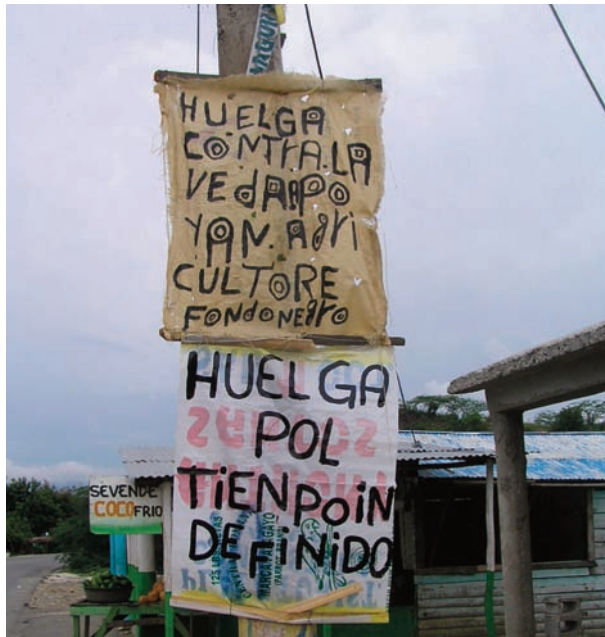 HUELGA
CONTRA.LA
VEdA.APO
YAN. Agri
CULTORE
FONdONEgrO
HUELGA
POL
TIENPOIN
DEFiNiDO
SEVENDE
COCO FRIO
125 LIBRAS